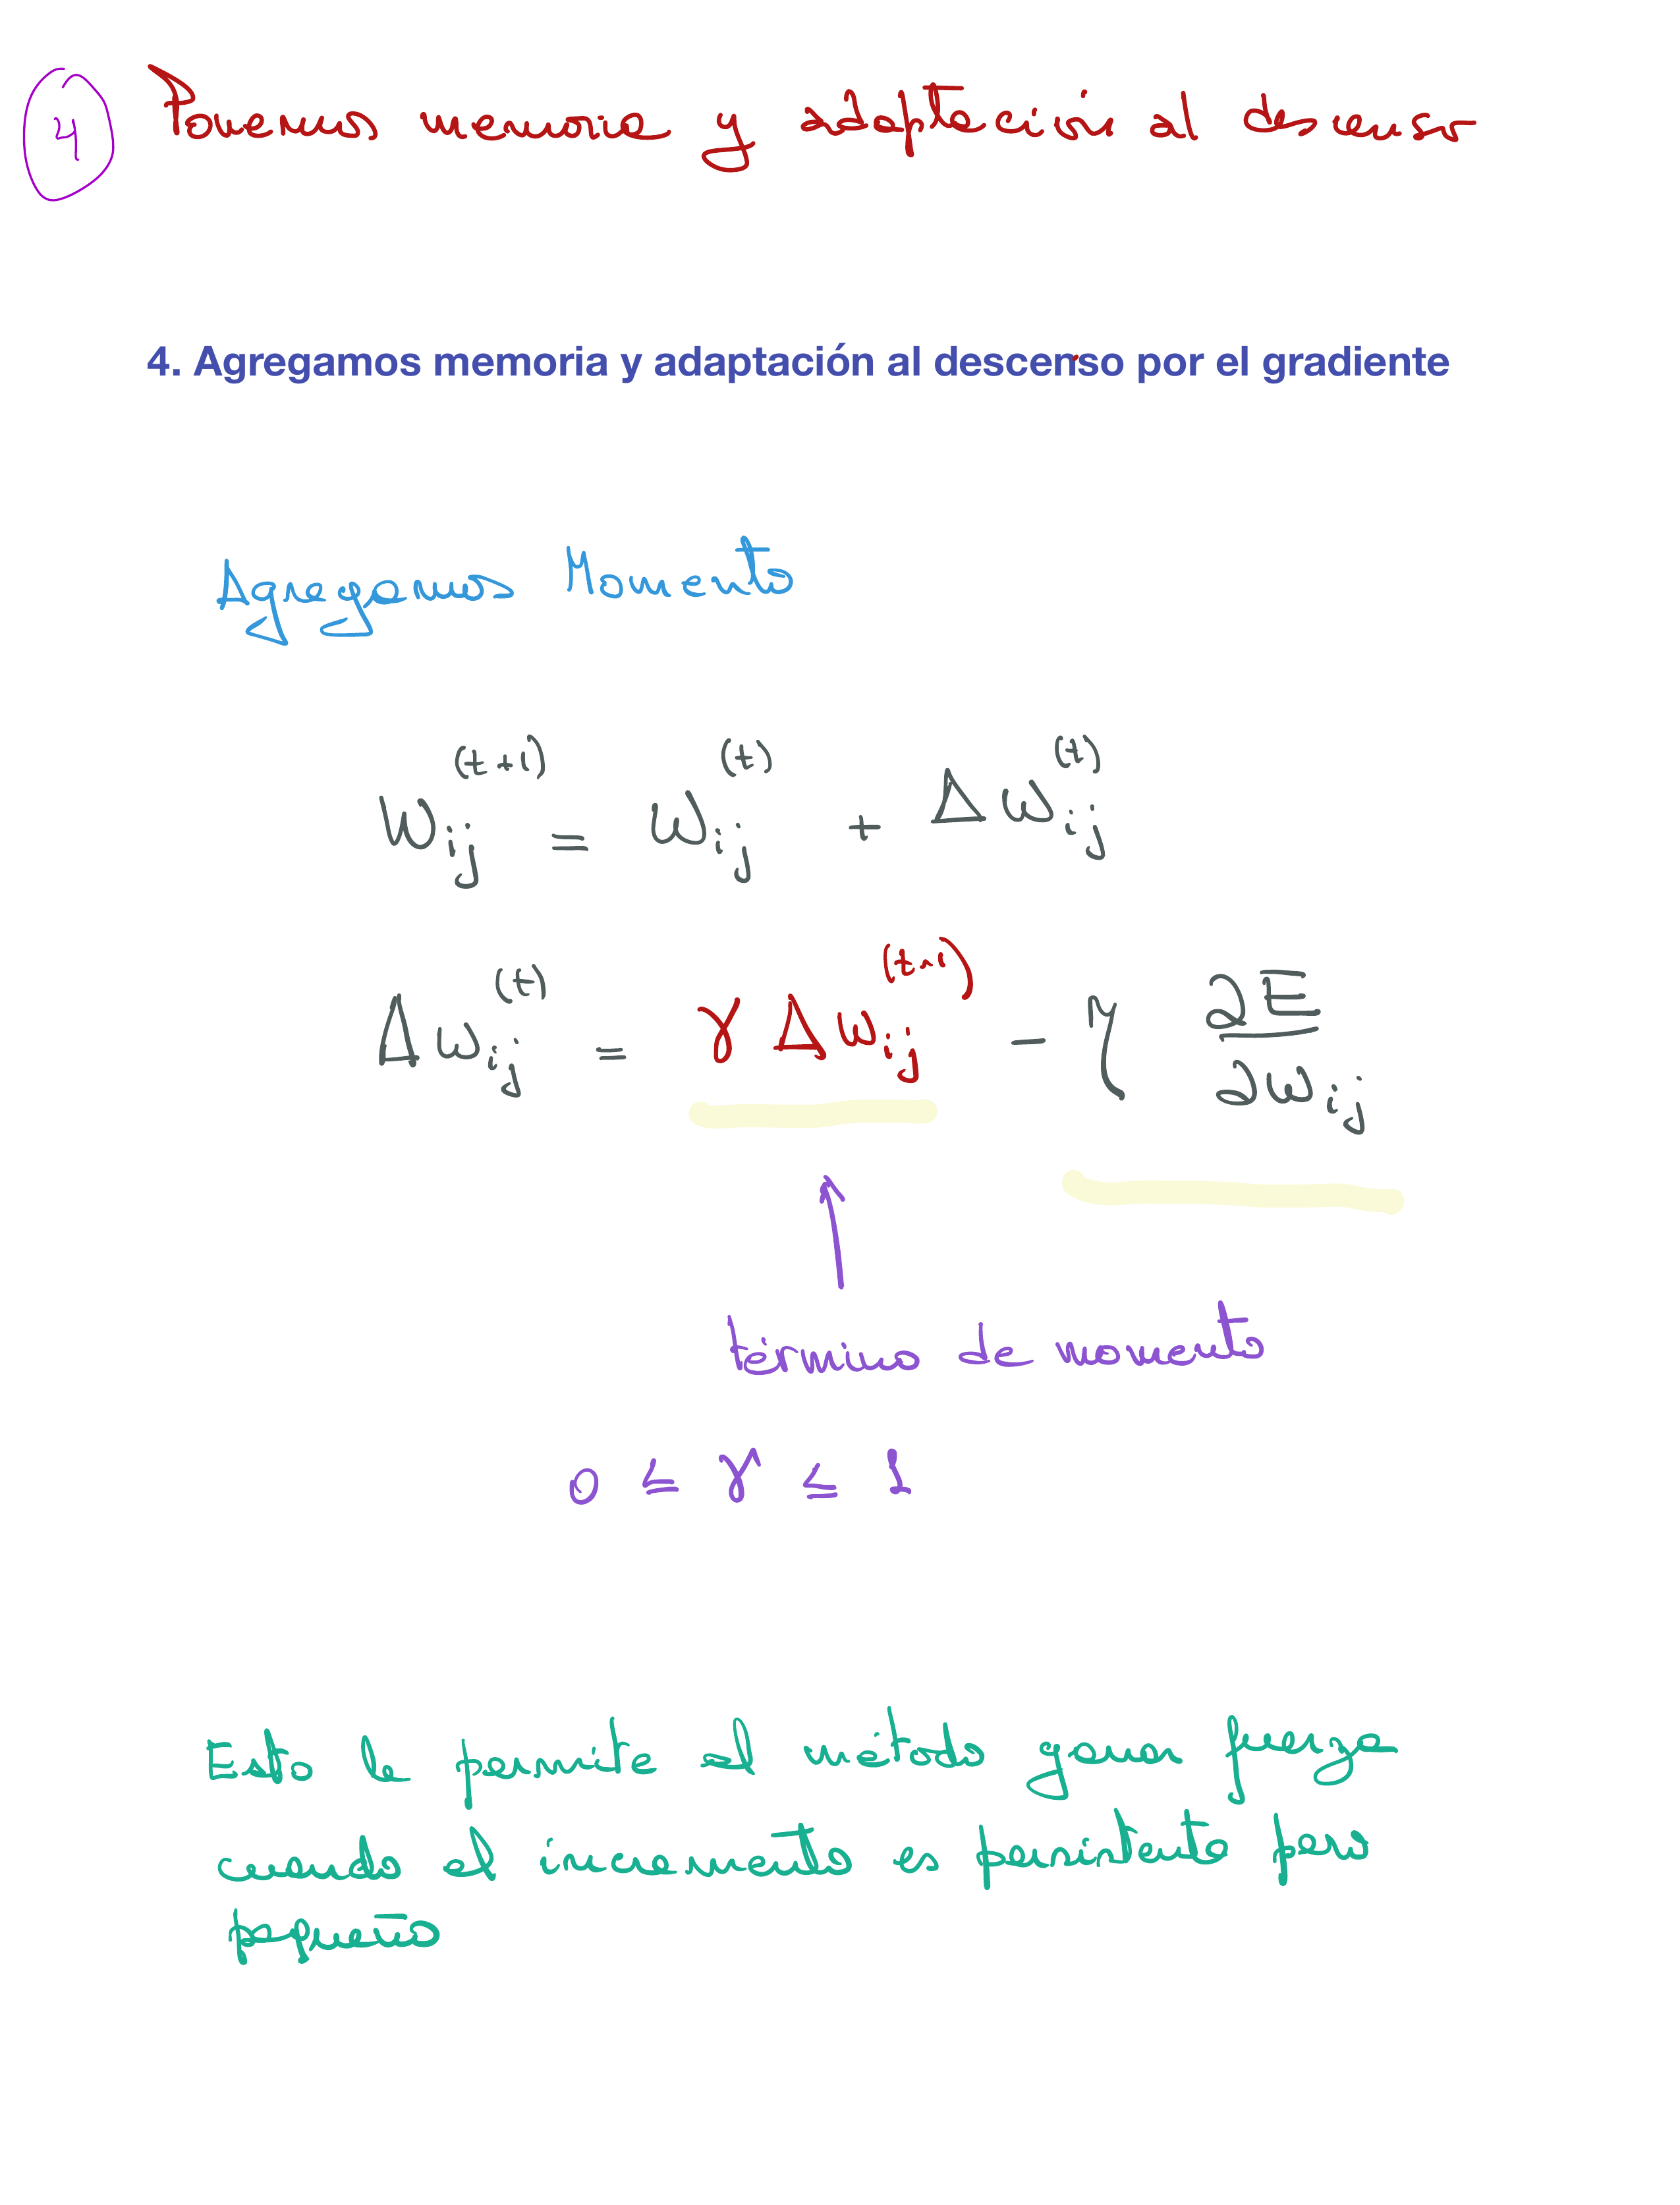 4
Ponemos memoria y adaptación al descenso
4. Agregamos memoria y adaptación al descenso por el gradiente
Agregamos Momento
w_ij^(t+1) = w_ij^(t) + Δw_ij^(t)
Δw_ij^(t) = γ Δw_ij^(t-1) - η ∂E/∂w_ij
término de momento
0 ≤ γ ≤ 1
Esto le permite al método ganar fuerza
cuando el incremento es persistente pero
pequeño